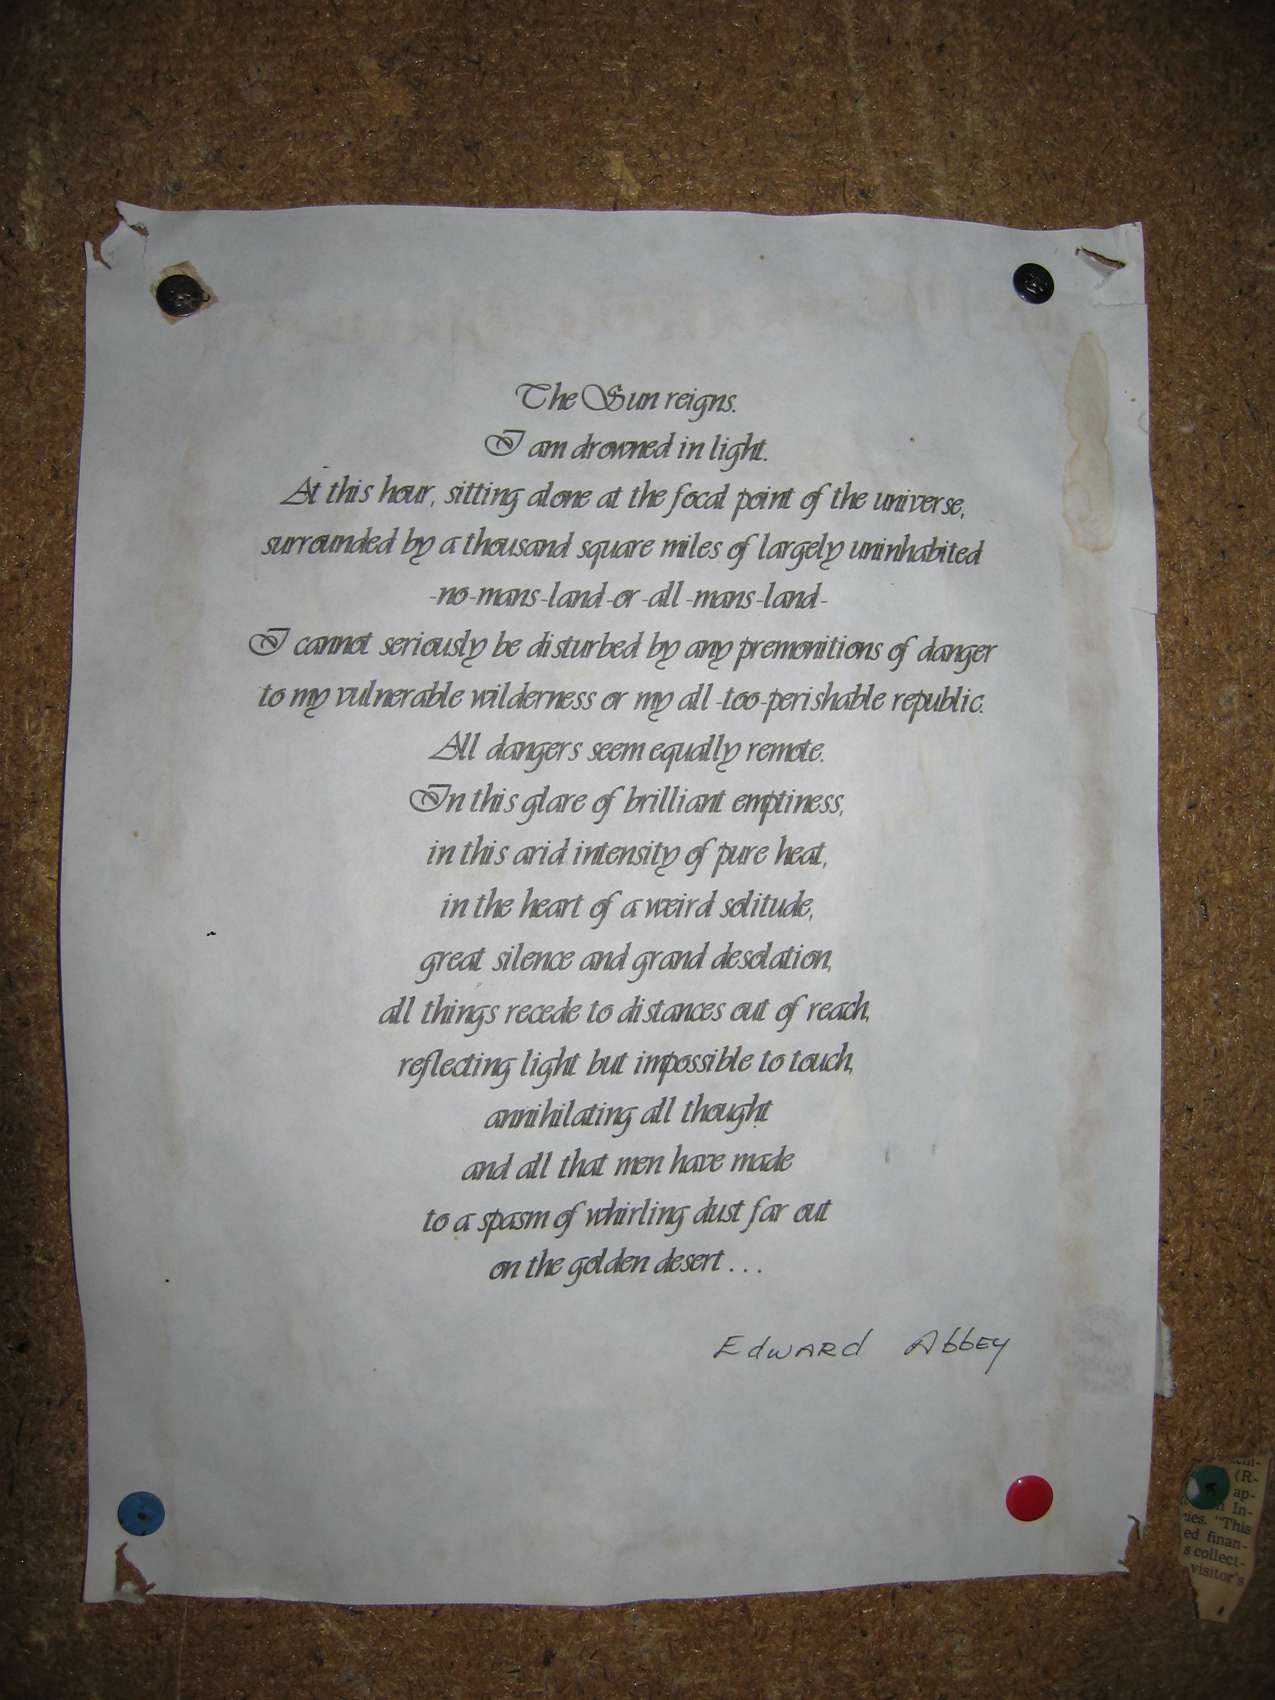 The Sun reigns.
I am drowned in light.
At this hour, sitting alone at the focal point of the universe,
surrounded by a thousand square miles of largely uninhabited
-no-mans-land-or-all-mans-land-
I cannot seriously be disturbed by any premonitions of danger
to my vulnerable wilderness or my all-too-perishable republic.
All dangers seem equally remote.
In this glare of brilliant emptiness,
in this arid intensity of pure heat,
in the heart of a weird solitude,
great silence and grand desolation,
all things recede to distances out of reach,
reflecting light but impossible to touch,
annihilating all thought
and all that men have made
to a spasm of whirling dust far out
on the golden desert . . .
Edward Abbey
(R-
ap-
In-
"This
ed finan-
s collect-
visitor's